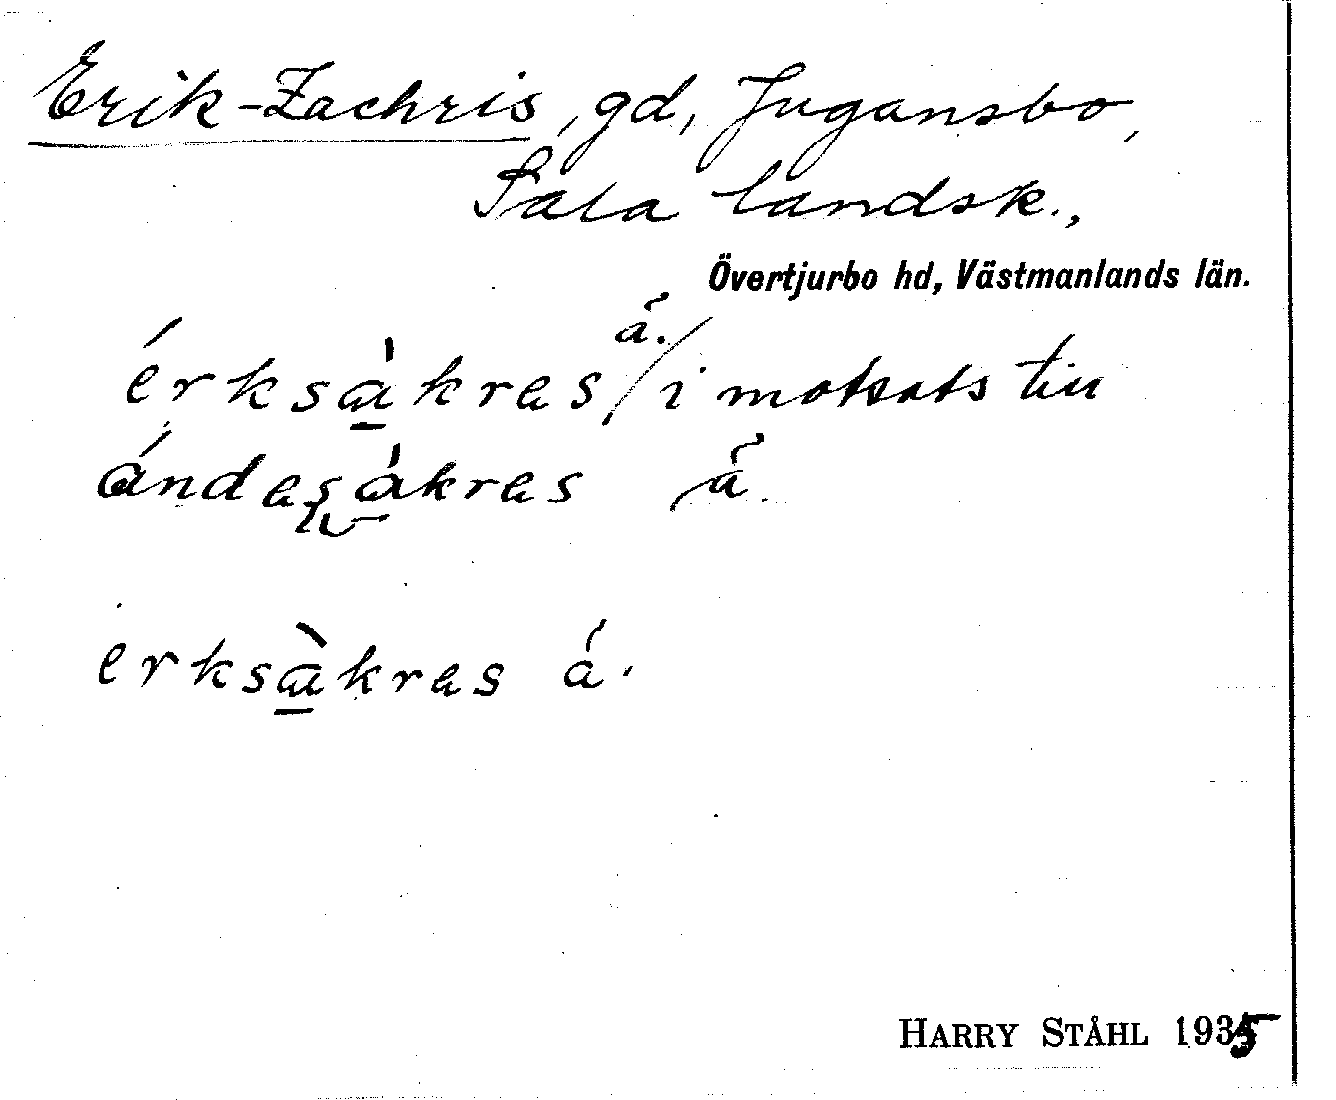 Erik-Zachris, gd, Jugansbo,
Sala landsk.,
Övertjurbo hd, Västmanlands län.
érksà̲kras á./ i motsats till
ándaşà̲kras á.
erksà̲kras á.
HARRY STÅHL 1935